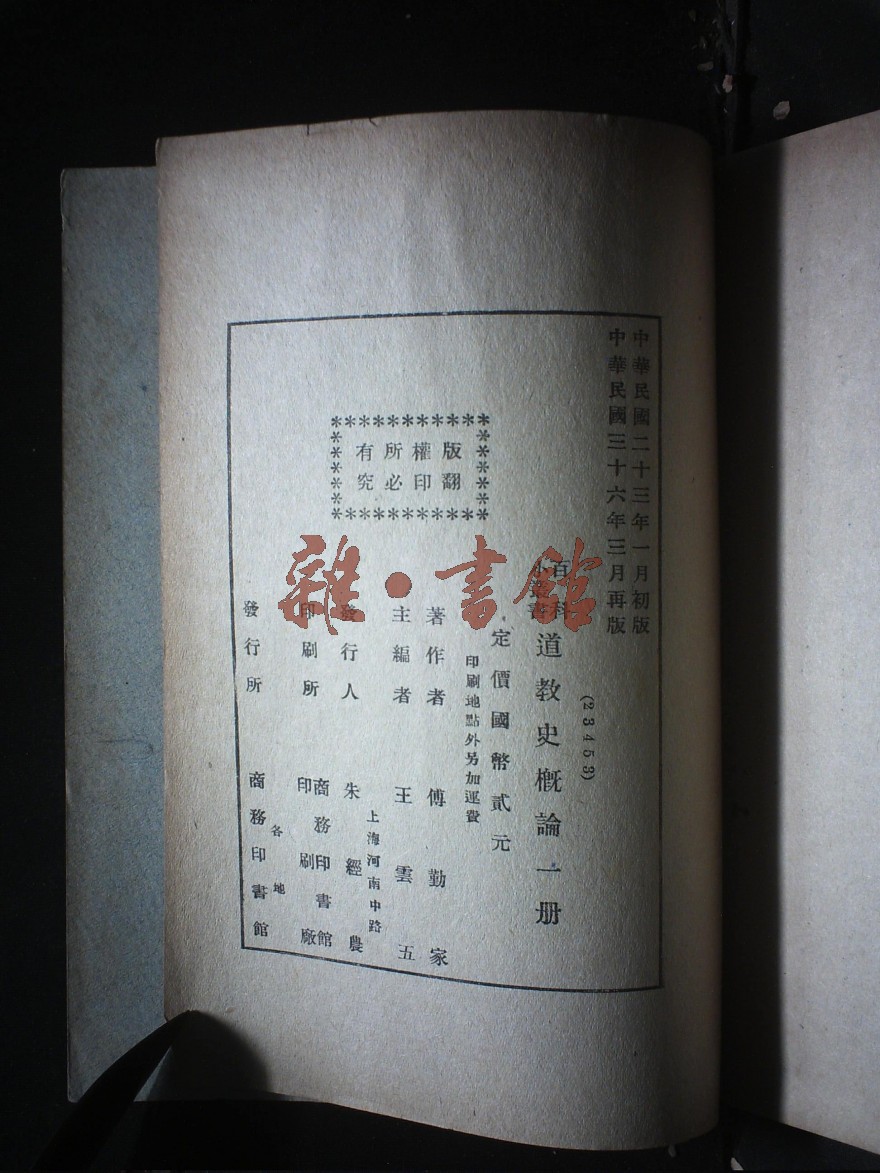 中華民國二十三年一月初版
中華民國三十六年三月再版
(23453)
百科小叢書
道教史概論一册
定價國幣貳元
印刷地點外另加運費
版權所有
翻印必究
著作者 傅勤家
主編者 王雲五
上海河南中路
發行人 朱經農
印刷所 商務印書館印刷廠
各地
發行所 商務印書館
雜·書館